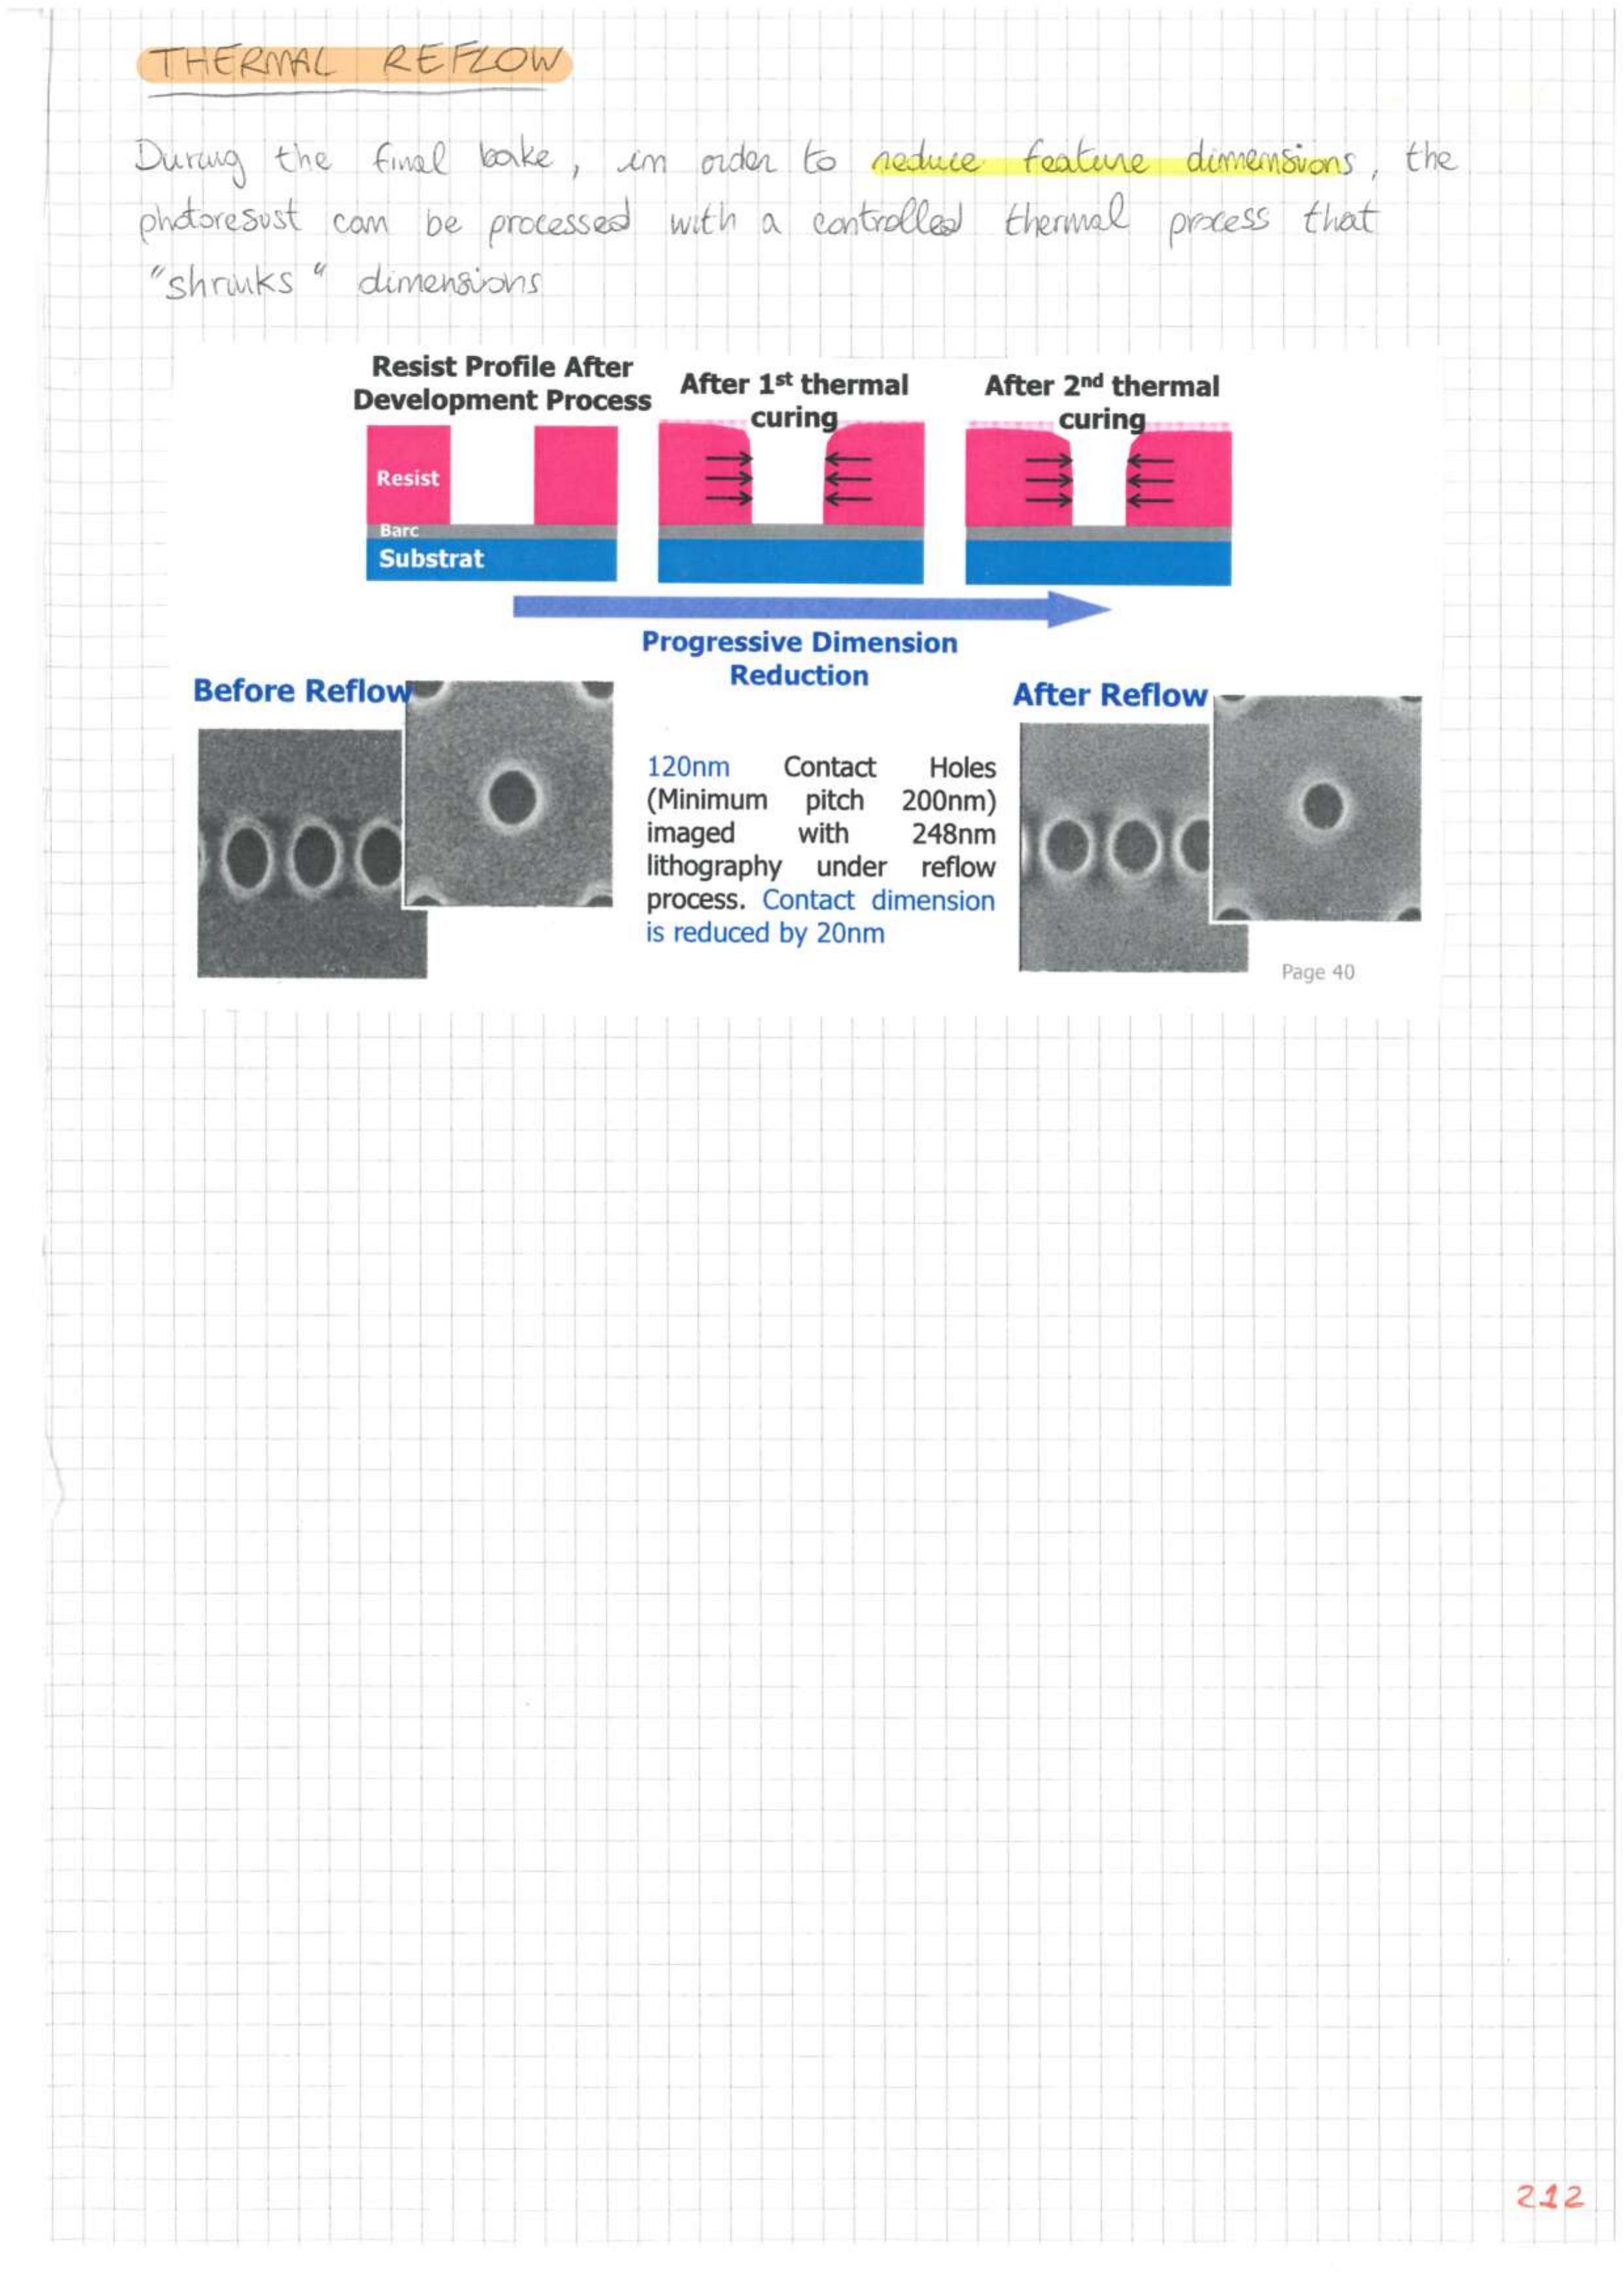 THERMAL REFLOW
During the final bake, in order to reduce feature dimensions, the
photoresist can be processed with a controlled thermal process that
"shrinks" dimensions
Resist Profile After
Development Process
After 1st thermal
curing
After 2nd thermal
curing
Resist
Barc
Substrat
Progressive Dimension
Reduction
Before Reflow
After Reflow
120nm Contact Holes
(Minimum pitch 200nm)
imaged with 248nm
lithography under reflow
process. Contact dimension
is reduced by 20nm
Page 40
212